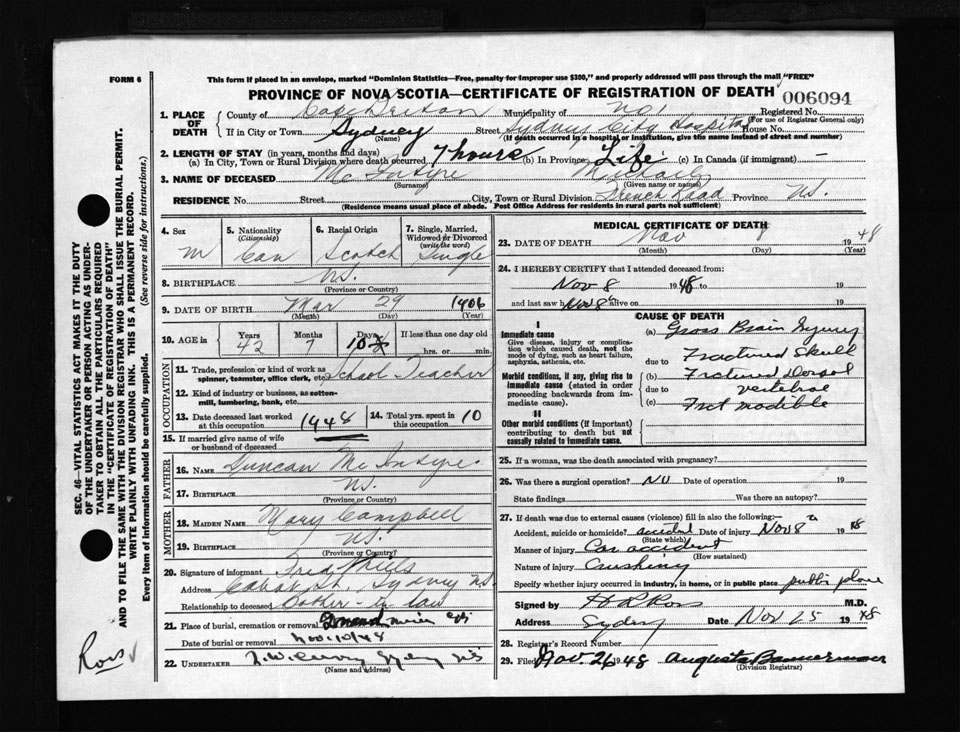 FORM 6
This form if placed in an envelope, marked "Dominion Statistics—Free, penalty for improper use $300," and properly addressed will pass through the mail "FREE"
PROVINCE OF NOVA SCOTIA—CERTIFICATE OF REGISTRATION OF DEATH
006094
1. PLACE OF DEATH
County of Cape Breton Municipality of Registered No.
(For use of Registrar General only)
If in City or Town Sydney Street Sydney City Hospital House No.
(Name) (If death occurred in a hospital or institution, give the name instead of street and number)
2. LENGTH OF STAY (in years, months and days)
(a) In City, Town or Rural Division where death occurred 7 hours (b) In Province Life (c) In Canada (if immigrant) —
3. NAME OF DECEASED McIntyre Michael
(Surname) (Given name or names)
RESIDENCE No. Street City, Town or Rural Division French Road Province N.S.
(Residence means usual place of abode. Post Office Address for residents in rural parts not sufficient)
4. Sex M
5. Nationality (Citizenship) Can
6. Racial Origin Scotch
7. Single, Married, Widowed or Divorced (write the word) Single
8. BIRTHPLACE N.S.
(Province or Country)
9. DATE OF BIRTH Mar 29 1906
(Month) (Day) (Year)
10. AGE in Years 42 Months 7 Days 10 If less than one day old
hrs. or min.
OCCUPATION
11. Trade, profession or kind of work as spinner, teamster, office clerk, etc. School Teacher
12. Kind of industry or business, as cotton-mill, lumbering, bank, etc.
13. Date deceased last worked at this occupation 1948
14. Total yrs. spent in 10
15. If married give name of wife or husband of deceased
FATHER
16. NAME Duncan McIntyre
17. BIRTHPLACE N.S.
(Province or Country)
MOTHER
18. MAIDEN NAME Mary Campbell
19. BIRTHPLACE N.S.
(Province or Country)
20. Signature of informant Fred
Address St. Sydney N.S.
Relationship to deceased in law
21. Place of burial, cremation or removal
Date of burial or removal Nov. 10/48
22. UNDERTAKER Sydney N.S.
(Name and address)
MEDICAL CERTIFICATE OF DEATH
23. DATE OF DEATH Nov 8 1948
(Month) (Day) (Year)
24. I HEREBY CERTIFY that I attended deceased from:
Nov 8 1948 to 19
and last saw h Nov 8 alive on 19
CAUSE OF DEATH
I
Immediate cause
Give disease, injury or complication which caused death, not the mode of dying, such as heart failure, asphyxia, asthenia, etc.
(a) Gross Brain Injury
due to Fractured Skull
Morbid conditions, if any, giving rise to immediate cause (stated in order proceeding backwards from immediate cause).
(b) Frctured Dorsal
due to vertebrae
(c) Frct modible
II
Other morbid conditions (if important) contributing to death but not causally related to immediate cause.
25. If a woman, was the death associated with pregnancy?
26. Was there a surgical operation? No Date of operation 19
State findings Was there an autopsy?
27. If death was due to external causes (violence) fill in also the following:—
Accident, suicide or homicide? accident Date of injury Nov 8 1948
(State which)
Manner of injury Car accident
(How sustained)
Nature of injury Crushing
Specify whether injury occurred in industry, in home, or in public place public place
Signed by H R Ross M.D.
Address Sydney Date Nov 25 1948
28. Registrar's Record Number
29. Filed Nov. 26 1948 Augusta
(Division Registrar)
SEC. 46—VITAL STATISTICS ACT MAKES IT THE DUTY
OF THE UNDERTAKER OR PERSON ACTING AS UNDERTAKER TO OBTAIN ALL THE PARTICULARS REQUIRED
IN THE "CERTIFICATE OF REGISTRATION OF DEATH"
AND TO FILE THE SAME WITH THE DIVISION REGISTRAR WHO SHALL ISSUE THE BURIAL PERMIT.
WRITE PLAINLY WITH UNFADING INK. THIS IS A PERMANENT RECORD.
Every item of information should be carefully supplied. (See reverse side for instructions.)
Ross